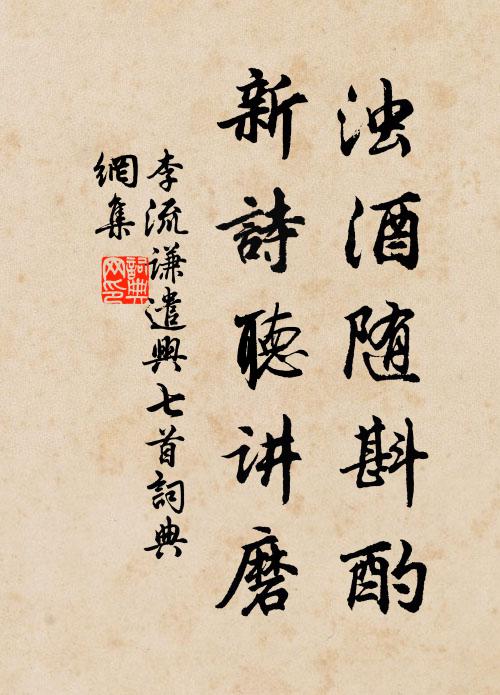 浊酒随斟酌
新詩聽讲磨
李流謙遣興七首詞典
網集
詞典
网印